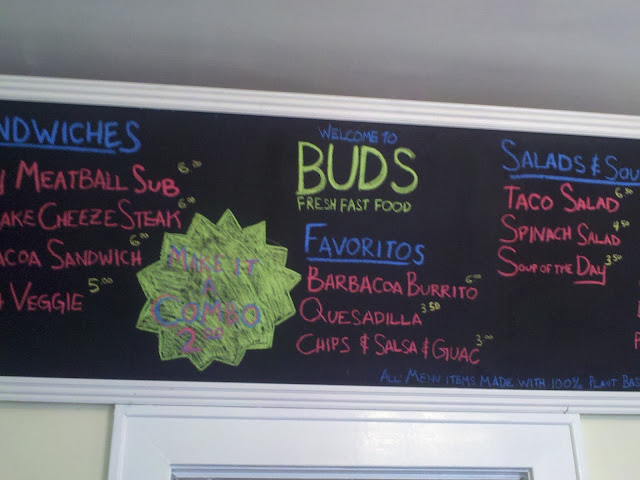 NDWICHES
MEATBALL SUB 6.00
AKE CHEEZE STEAK 6.00
ACOA SANDWICH 6.00
VEGGIE 5.00
MAKE IT
A
COMBO
2.00
WELCOME TO
BUDS
FRESH FAST FOOD
FAVORITOS
BARBACOA BURRITO 6.00
QUESADILLA 3.50
CHIPS & SALSA & GUAC 3.00
SALADS & SOU
TACO SALAD 6.50
SPINACH SALAD 4.50
SOUP OF THE DAY 3.50
ALL MENU ITEMS MADE WITH 100% PLANT BAS